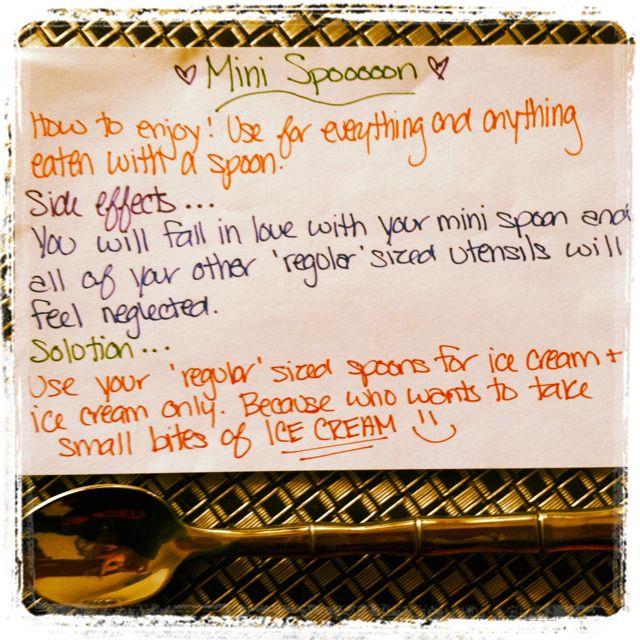 ♡ Mini Spooooon ♡
How to enjoy! Use for everything and anything
eaten with a spoon.
Side effects...
You will fall in love with your mini spoon and
all of your other 'regular' sized utensils will
feel neglected.
Solution...
Use your 'regular' sized spoons for ice cream +
ice cream only. Because who wants to take
small bites of ICE CREAM :)